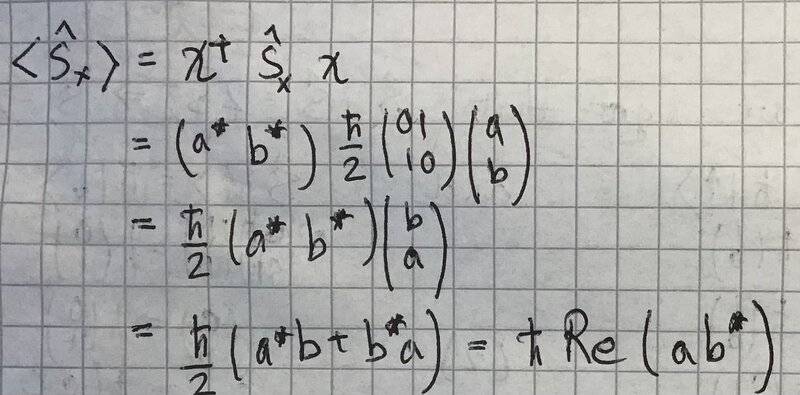 ⟨Ŝₓ⟩ = χ† Ŝₓ χ
= (a* b*) ħ/2 (0 1 / 1 0) (a / b)
= ħ/2 (a* b*) (b / a)
= ħ/2 (a*b + b*a) = ħ Re (ab*)